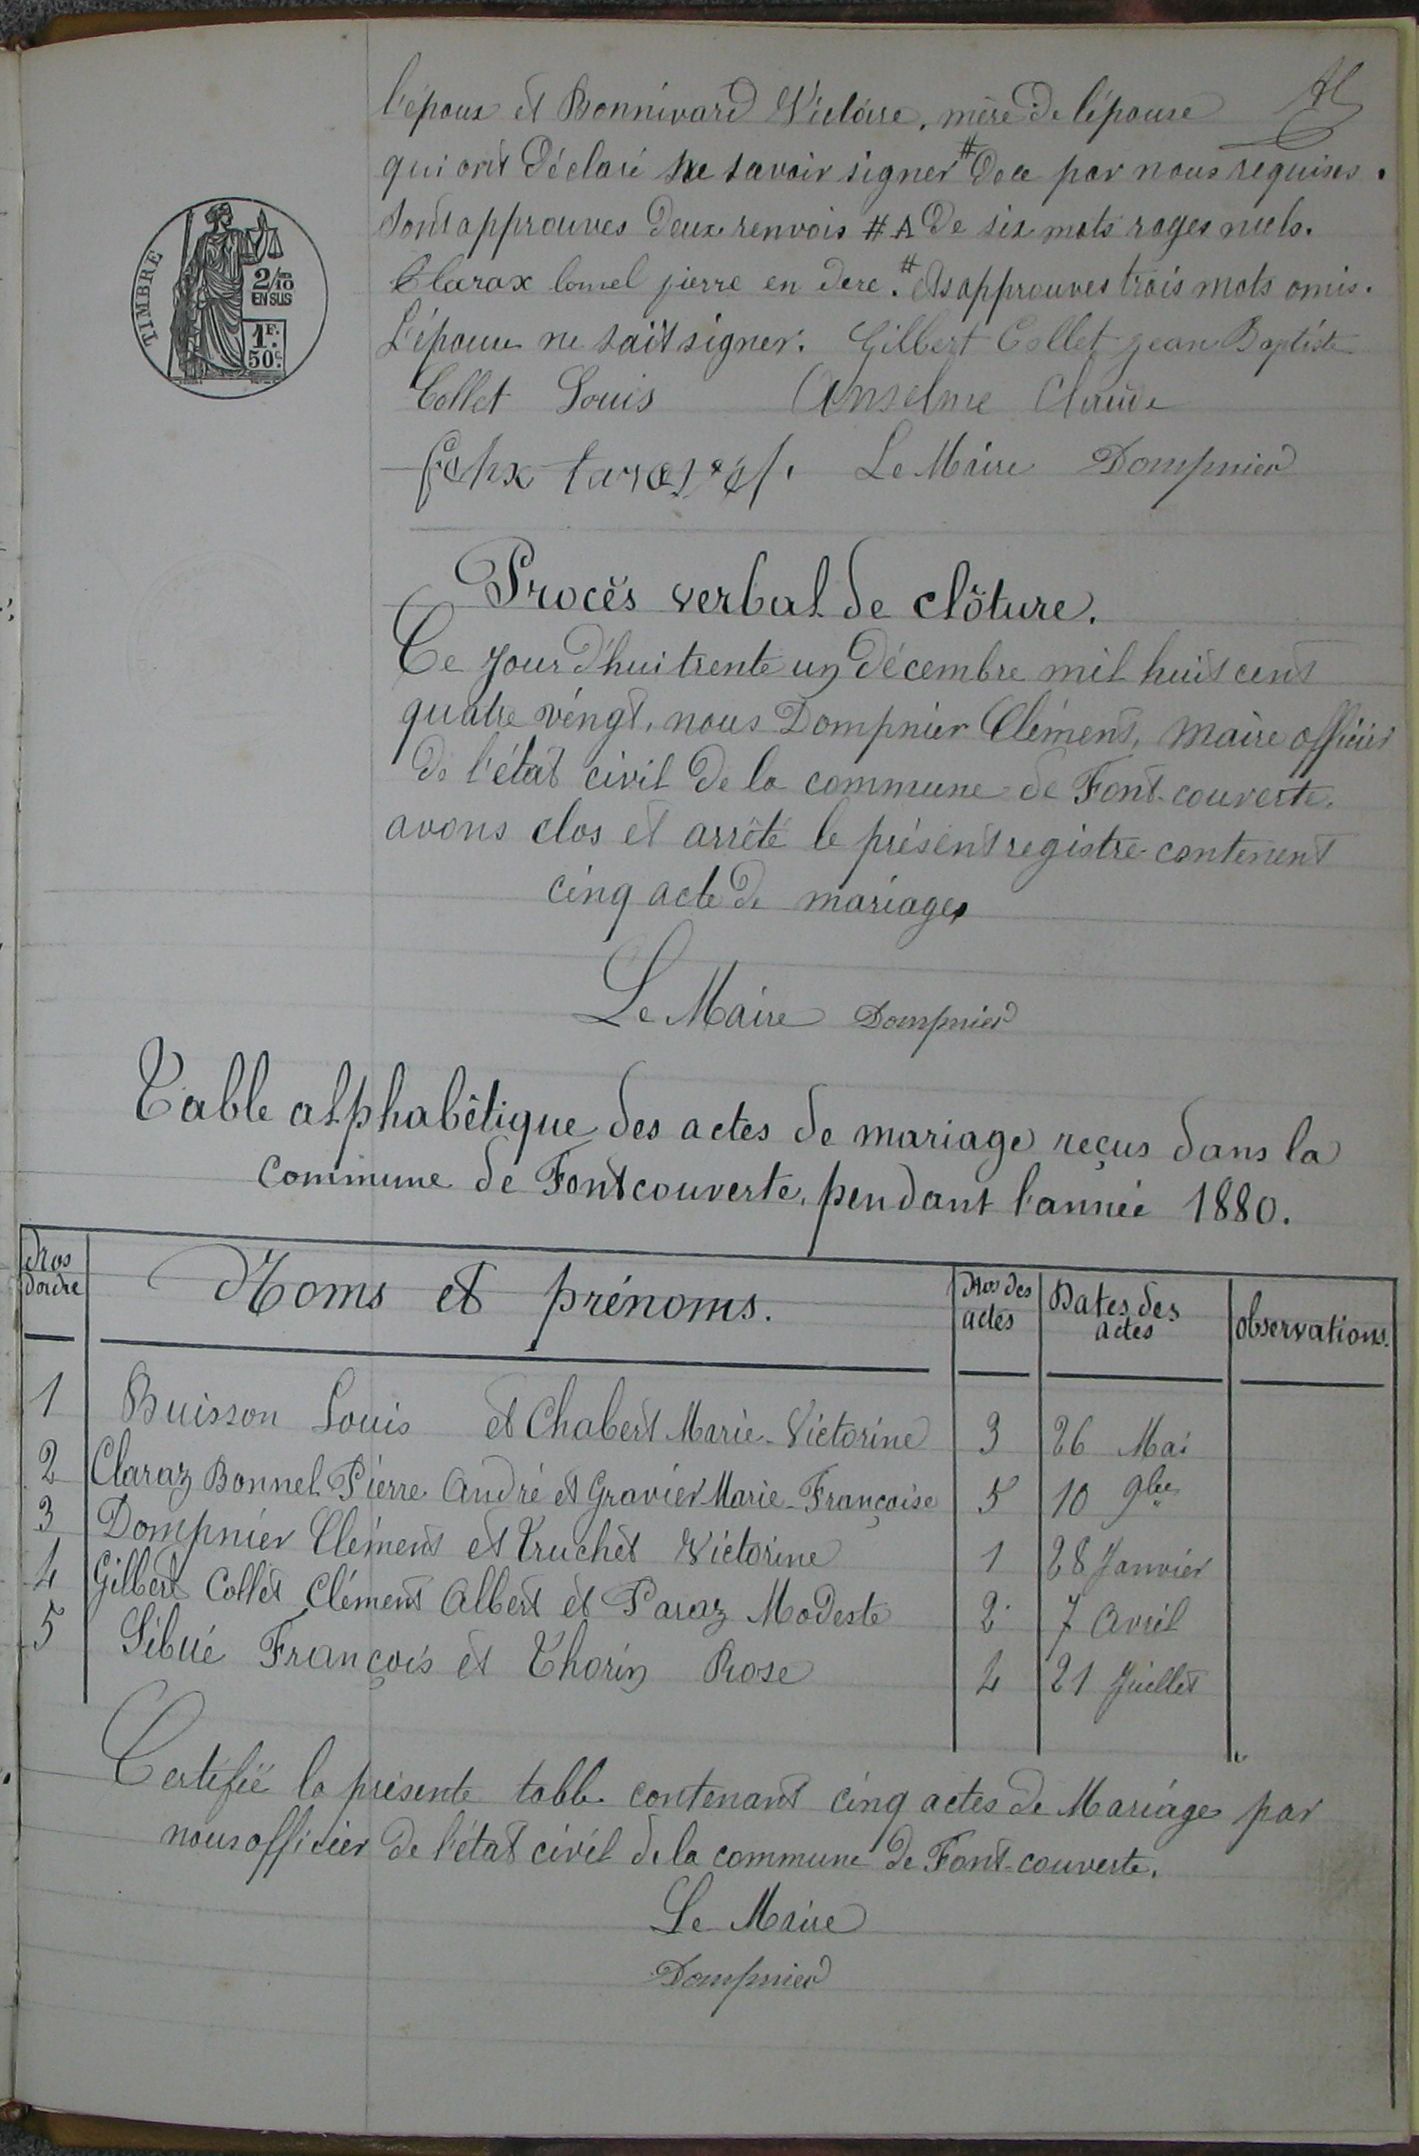 l'époux et Bonnivard Victoire, mère de l'épouse
qui ont déclaré ne savoir signer # de ce par nous requises.
Sont approuves deux renvois # A de six mots rayes nuls.
Claraz bonel pierre en dere. # Et approuves trois mots omis.
L'épouse ne sait signer. Gilbert Collet jean Baptiste
Collet Louis Anselme Claude
Le Maire Dompnier
TIMBRE
2/10
EN SUS
1F.
50c.
Procès verbal de clôture.
Ce jour d'hui trente un décembre mil huit cent
quatre vingt, nous Dompnier Clément, Maire officier
de l'état civil de la commune de Font-couverte.
avons clos et arrêté le présent registre contenent
cinq acte de mariages
Le Maire Dompnier
Table alphabêtique des actes de mariage reçus dans la
commune de Fontcouverte, pendant l'année 1880.
Nos d'ordre Noms et prénoms. Nos des actes Dates des actes observations.
1 Buisson Louis et Chabert Marie-Victorine 3 26 Mai
2 Claraz Bonnel Pierre André et Gravier Marie-Françoise 5 10 9bre
3 Dompnier Clément et Truchet Victorine 1 28 Janvier
4 Gilbert Collet Clément Albert et Paraz Modeste 2 7 Avril
5 Sibué François et Thorin Rose 4 21 Juillet
Certifié la présente table contenant cinq actes de Mariages par
nous officier de l'état civil de la commune de Font-couverte.
Le Maire
Dompnier